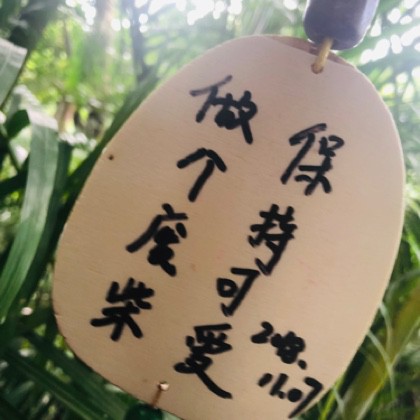 保持可爱
做个废柴
2018.
11.07